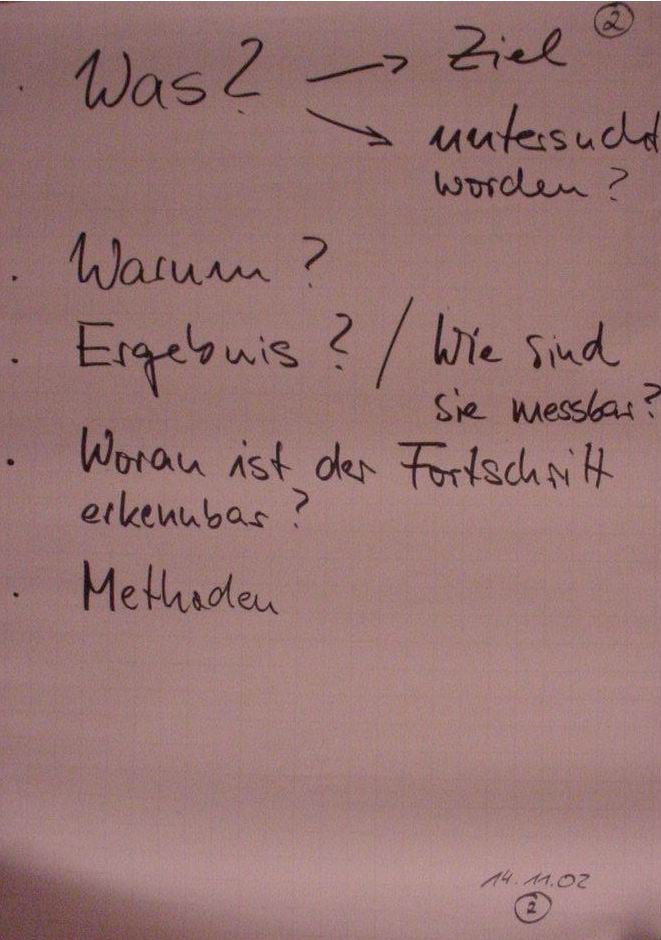 ②
· Was? → Ziel
↘ untersucht
worden?
· Warum?
· Ergebnis? / Wie sind
sie messbar?
· Woran ist der Fortschritt
erkennbar?
· Methoden
14.11.02
②